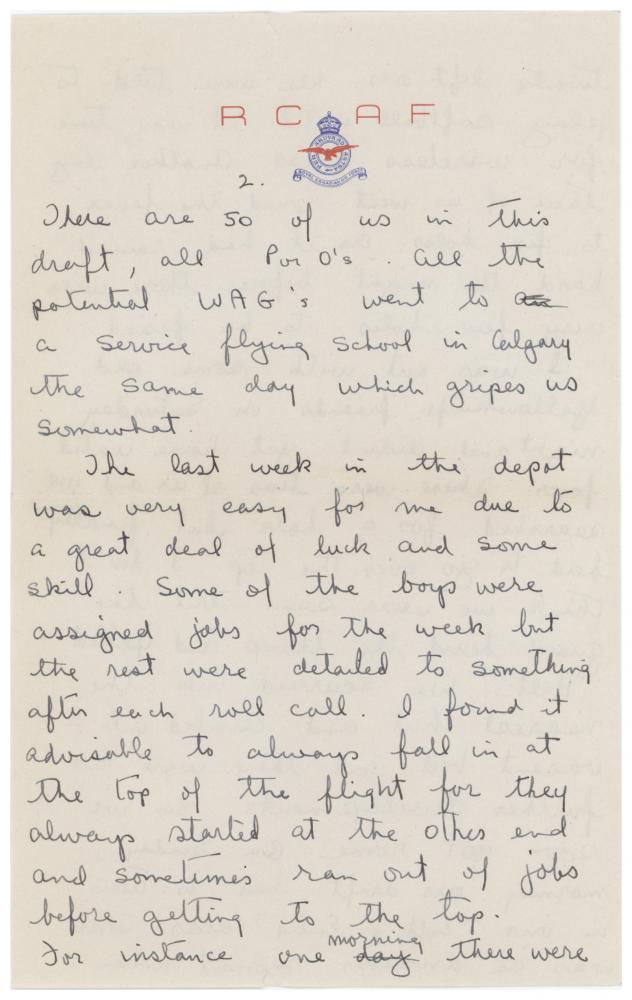 R C A F
PER ARDUA AD ASTRA
ROYAL CANADIAN AIR FORCE
2.
There are 50 of us in this
draft, all P or O's. All the
potential WAG's went to
a service flying school in Calgary
the same day which gripes us
somewhat.
The last week in the depot
was very easy for me due to
a great deal of luck and some
skill. Some of the boys were
assigned jobs for the week but
the rest were detailed to something
after each roll call. I found it
advisable to always fall in at
the top of the flight for they
always started at the other end
and sometimes ran out of jobs
before getting to the top.
For instance one morning day there were